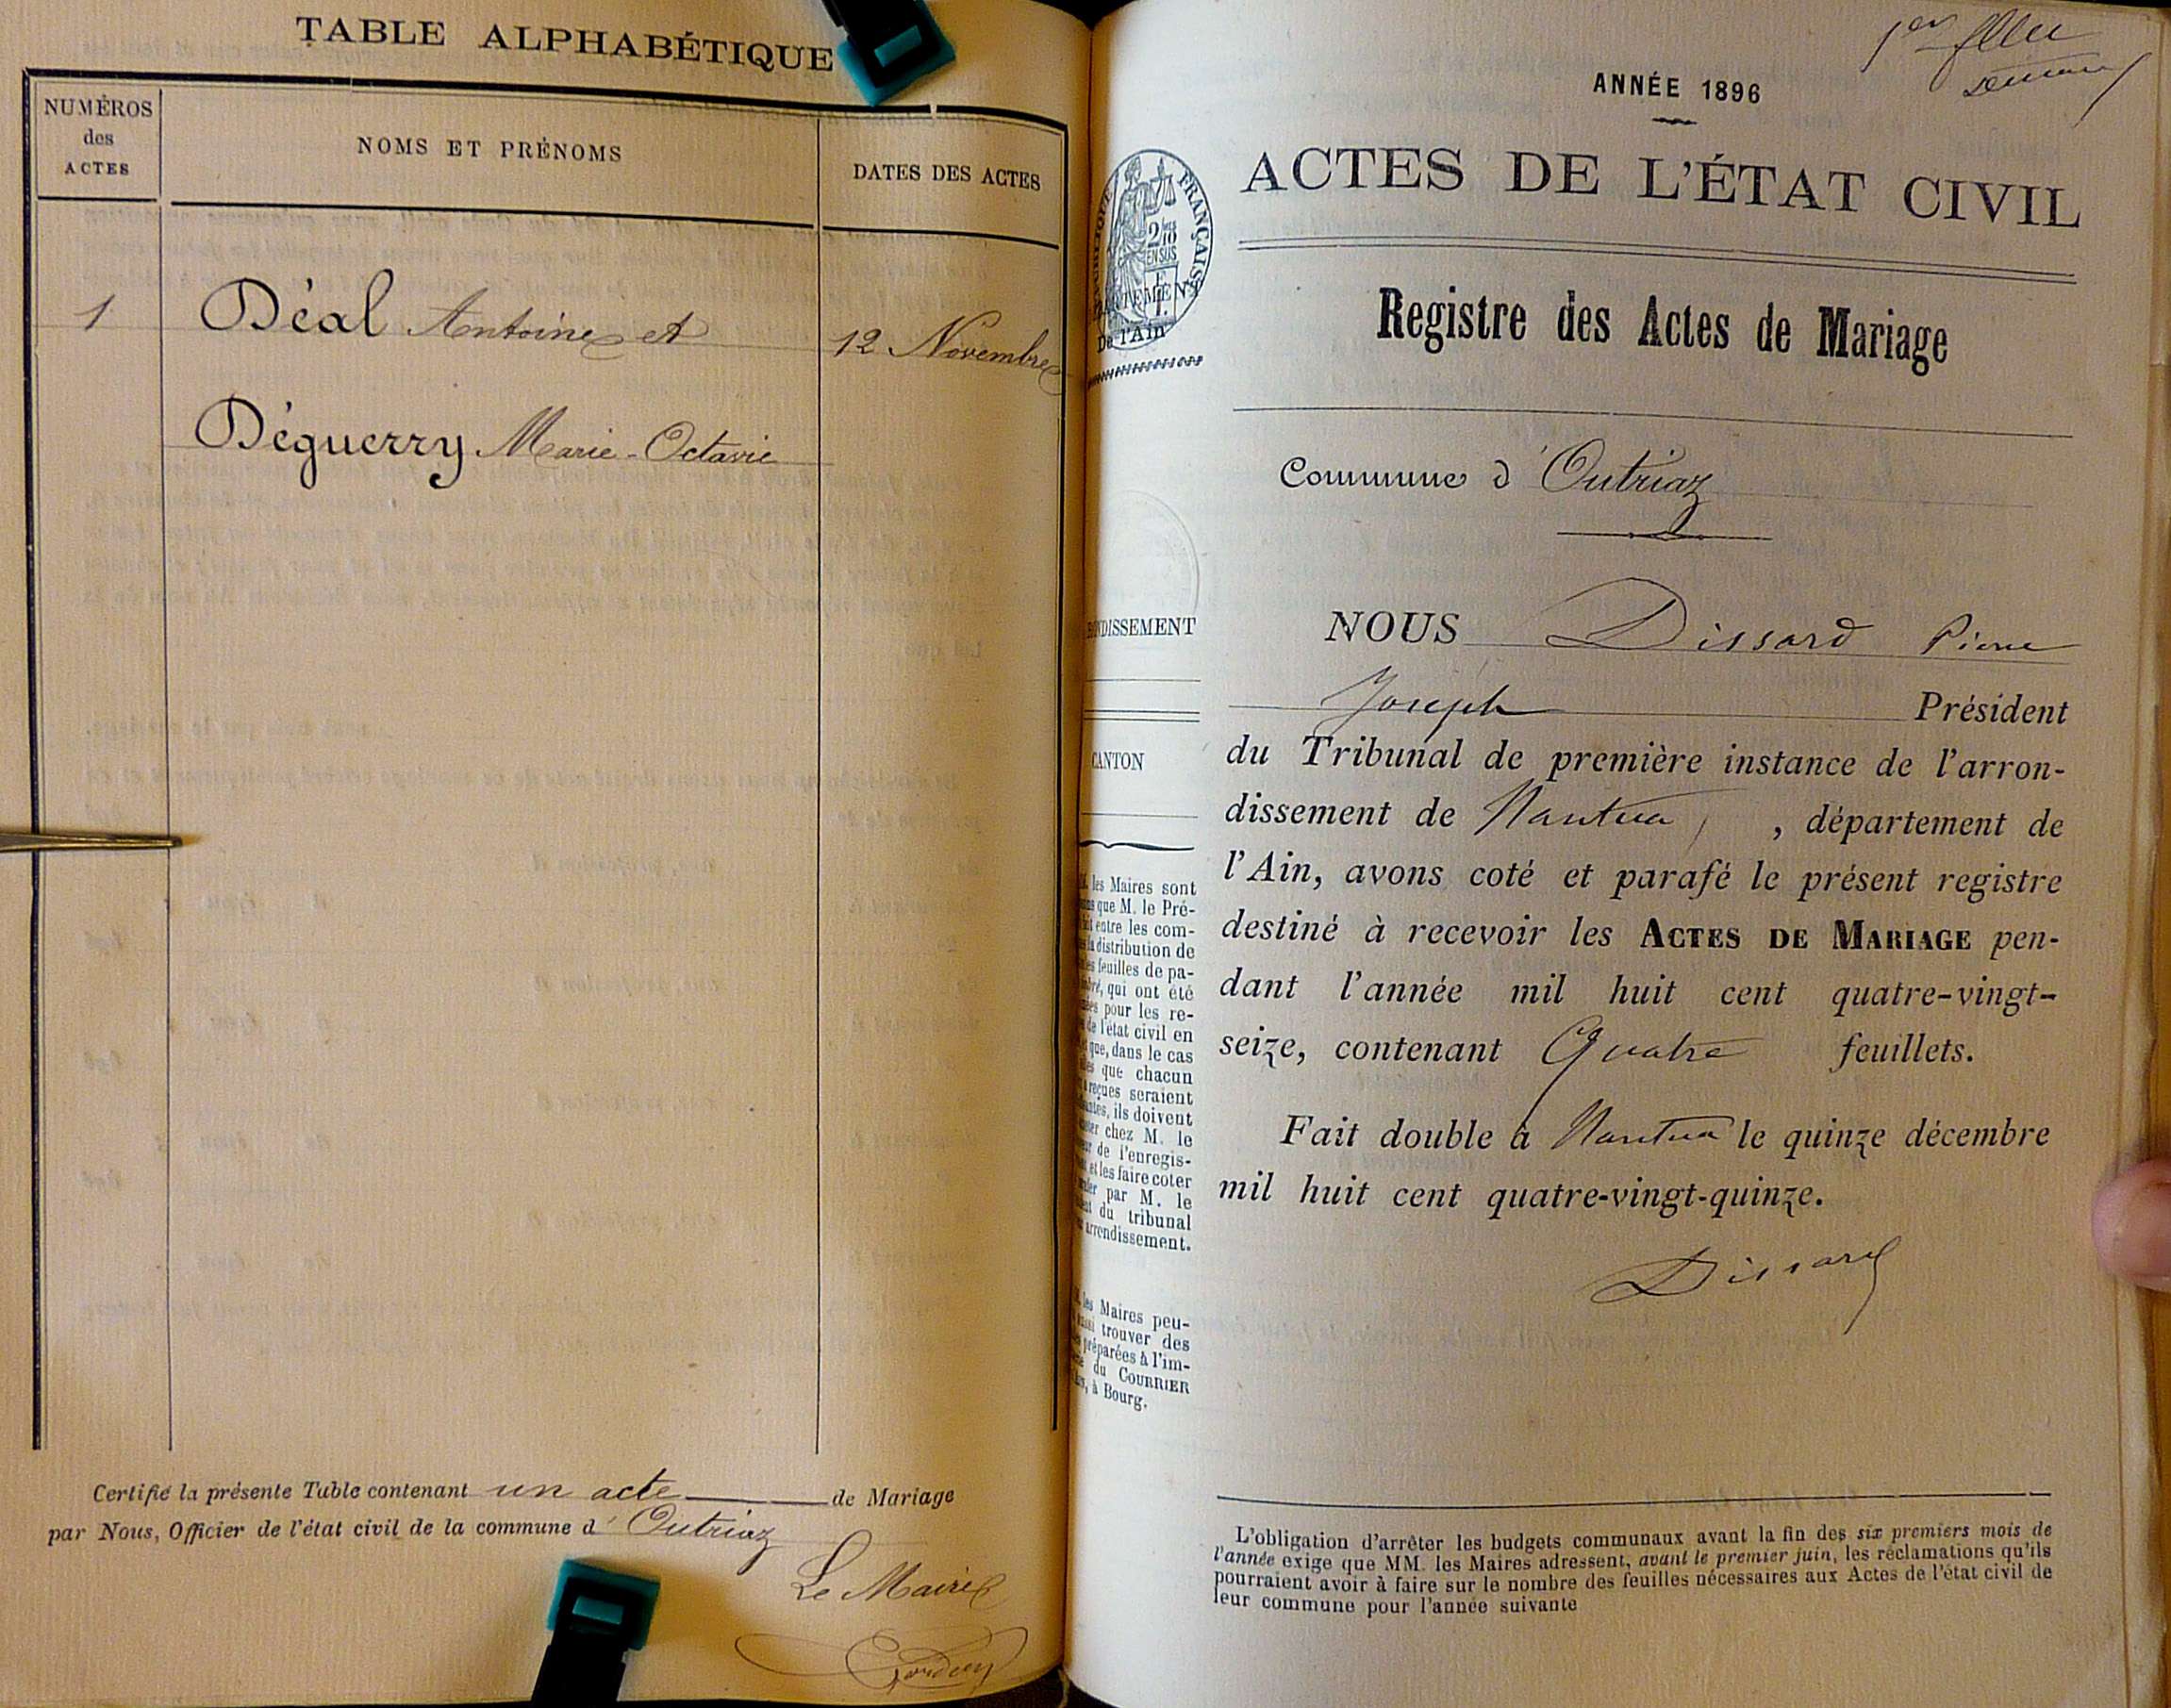 TABLE ALPHABÉTIQUE
NUMÉROS
des
ACTES
NOMS ET PRÉNOMS
DATES DES ACTES
1
Déal Antoine et
12 Novembre
Déguerry Marie-Octavie
Certifié la présente Table contenant un acte de Mariage
par Nous, Officier de l'état civil de la commune d'Outriaz
Le Maire
1er
ANNÉE 1896
ACTES DE L'ÉTAT CIVIL
FRANÇAIS
De l'Ain
Registre des Actes de Mariage
Commune d'Outriaz
NOUS Dissard Pierre
Joseph Président
du Tribunal de première instance de l'arron-
dissement de Nantua, département de
l'Ain, avons coté et parafé le présent registre
destiné à recevoir les ACTES DE MARIAGE pen-
dant l'année mil huit cent quatre-vingt-
seize, contenant Quatre feuillets.
Fait double à Nantua le quinze décembre
mil huit cent quatre-vingt-quinze.
Dissard
CANTON
les Maires sont
que M. le Pré-
entre les com-
la distribution de
feuilles de pa-
qui ont été
pour les re-
de l'état civil en
que, dans le cas
que chacun
reçues seraient
ils doivent
chez M. le
de l'enregis-
et les faire coter
par M. le
du tribunal
les Maires peu-
trouver des
préparées à l'im-
du COURRIER
à Bourg.
L'obligation d'arrêter les budgets communaux avant la fin des six premiers mois de
l'année exige que MM. les Maires adressent, avant le premier juin, les réclamations qu'ils
pourraient avoir à faire sur le nombre des feuilles nécessaires aux Actes de l'état civil de
leur commune pour l'année suivante